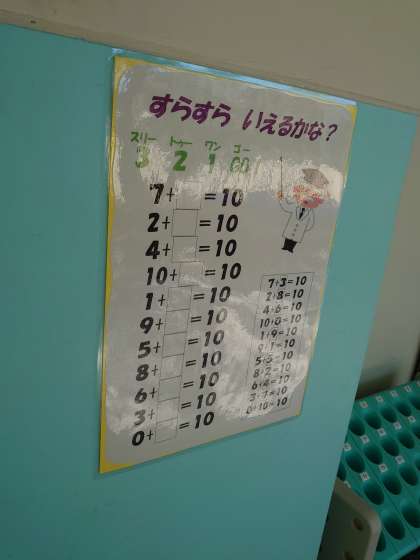 すらすら いえるかな?
スリー トゥー ワン ゴー
3 2 1 GO
7+□=10
2+□=10
4+□=10
10+□=10
1+□=10
9+□=10
5+□=10
8+□=10
6+□=10
3+□=10
0+□=10
7+3=10
2+8=10
4+6=10
10+0=10
1+9=10
9+1=10
5+5=10
8+2=10
6+4=10
3+7=10
0+10=10